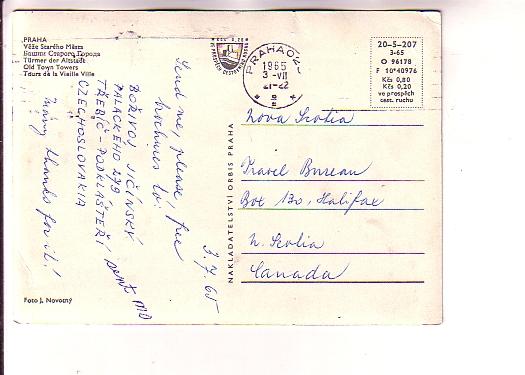 PRAHA
Věže Starého Města
Башни Старого Города
Türmer der Altstadt
Old Town Towers
Tours de la Vieille Ville
Send me, please, free
brochures to:
BOŘIVOJ JIČÍNSKÝ
PALACKÉHO 279
TŘEBÍČ - PODKLÁŠTEŘÍ
CZECHOSLOVAKIA
Many thanks for it!
3.7.65
Foto J. Novotný
NAKLADATELSTVÍ ORBIS PRAHA
Kčs 0,20
PRAHA
1965
3-VII
21-22
20-5-207
3-65
O 96178
F 10*40976
Kčs 0,80
Kčs 0,20
ve prospěch
cest. ruchu
Nova Scotia
Travel Bureau
Box 130, Halifax
N. Scotia
Canada